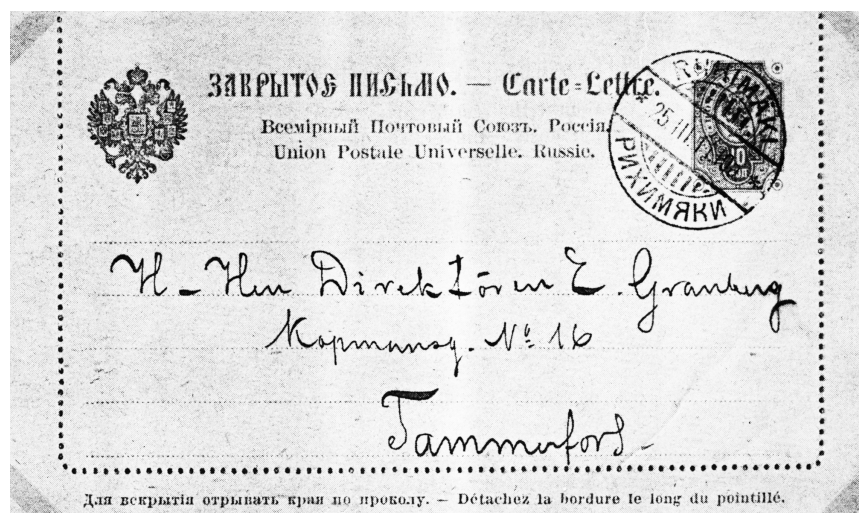 ЗАКРЫТОЕ ПИСЬМО. — Carte-Lettre.
Всемірный Почтовый Союзъ. Россія.
Union Postale Universelle. Russie.
RIIHIMÄKI
25.III.
РИХИМЯКИ
H-Hen Direktören E. Granberg
Kopmansg. No 16
Tammerfors
Для вскрытія отрывать края по проколу. — Détachez la bordure le long du pointillé.